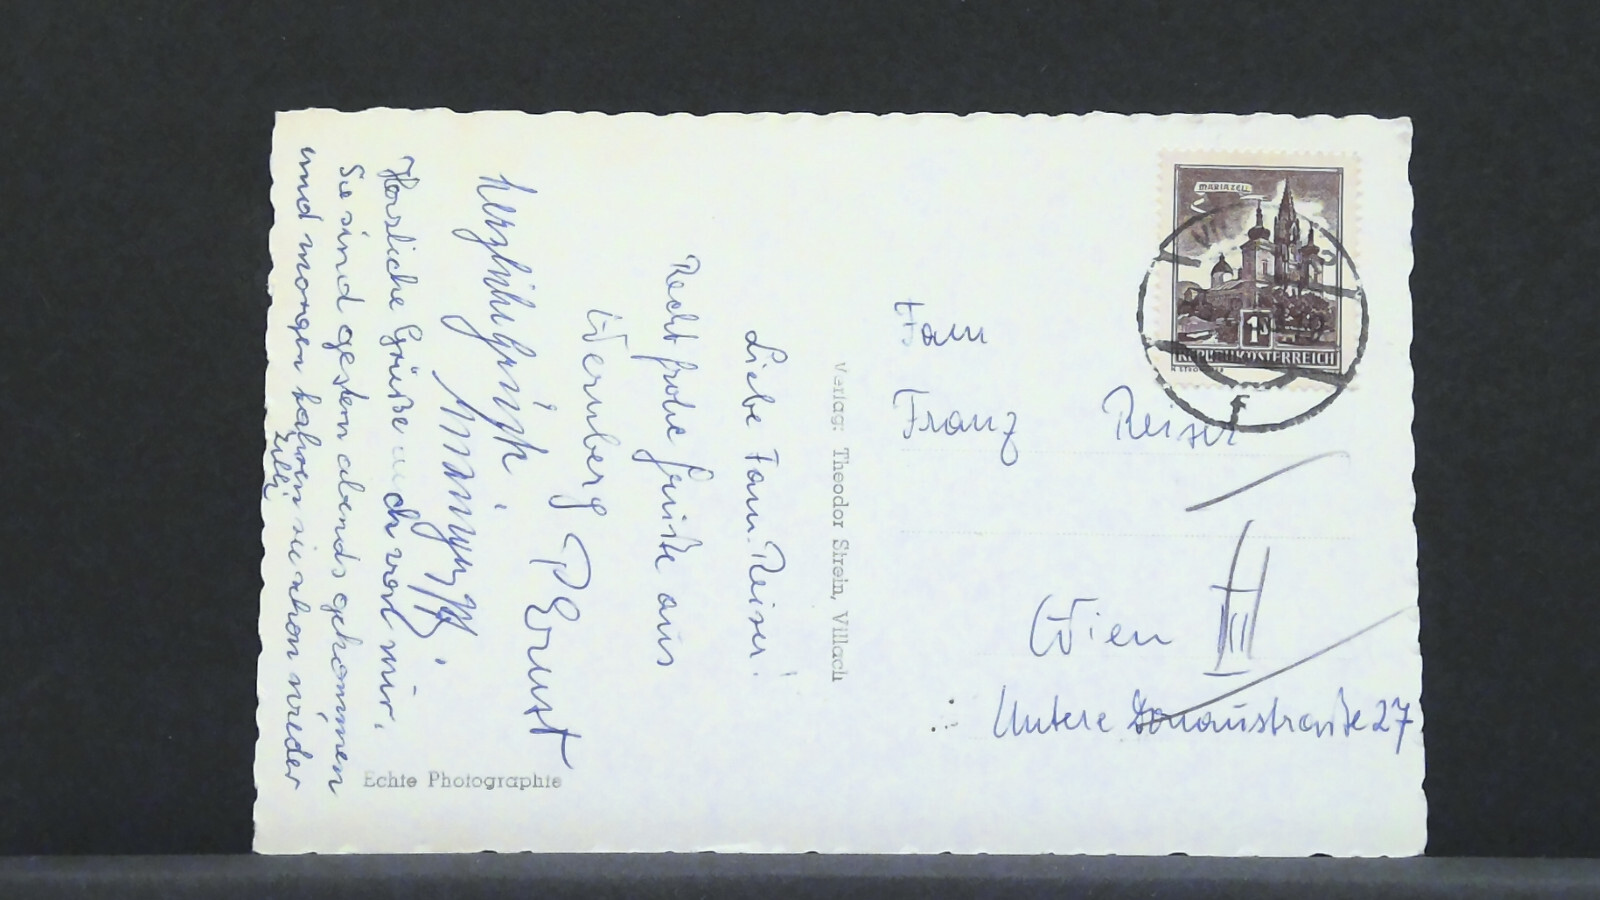 Liebe Fam. Reiser!
Recht frohe Grüße aus
Wernberg
P Ernst
Herzliche Grüße auch von mir.
Sie sind gestern abends gekommen
und morgen fahren sie schon wieder
Zilli
Echte Photographie
Verlag: Theodor Strein, Villach
MARIAZELL
1S
REPUBLIK ÖSTERREICH
Fam
Franz Reiser
Wien II
Untere Donaustraße 27